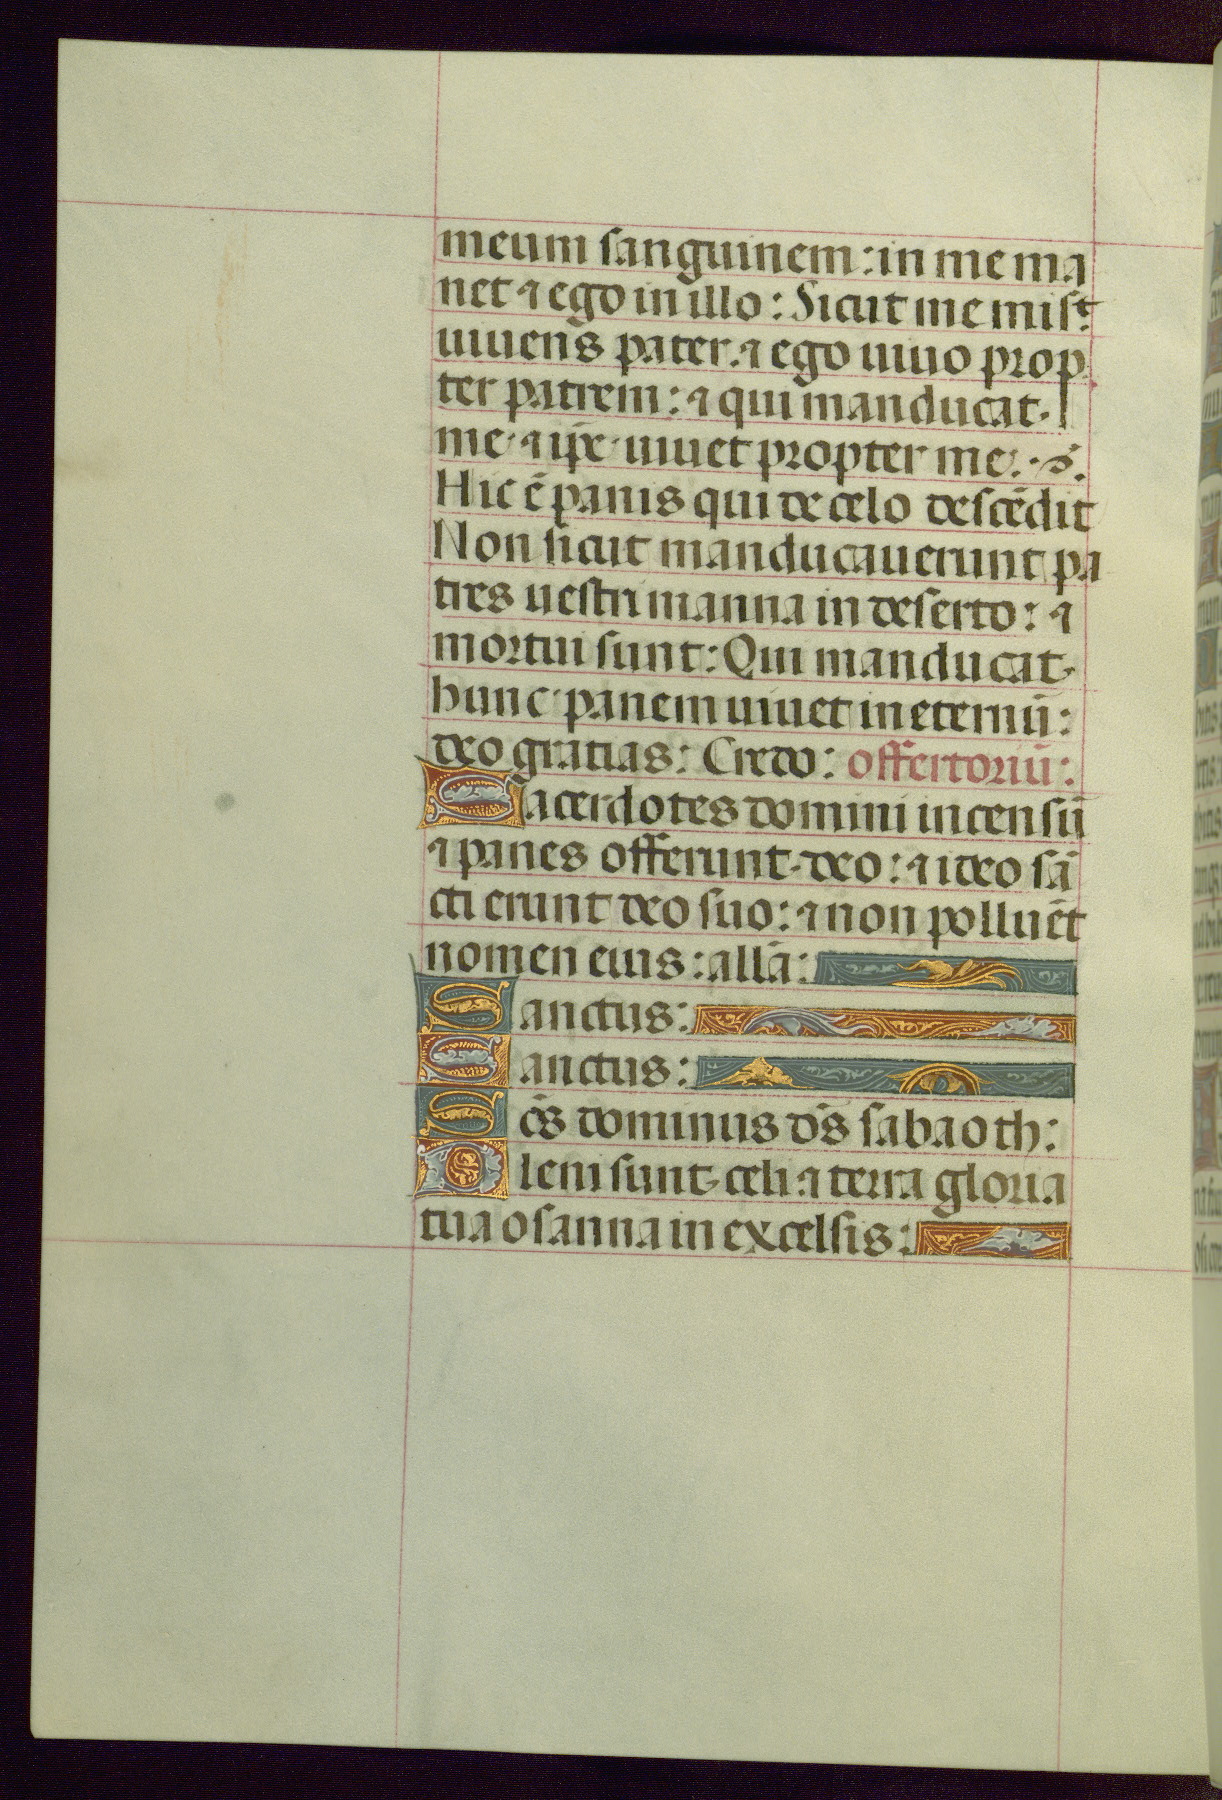 meum sanguinem: in me ma
net ⁊ ego in illo: Sicut me misᵗ
uiuens pater. ⁊ ego uiuo prop
ter patrem: ⁊ qui manducat.
me ⁊ ip̄e uiuet propter me.
Hic ē panis qui de celo descēdit
Non sicut manducauerunt pa
tres uestri manna in deserto: ⁊
mortui sunt: Qui manducat
hunc panem uiuet in eternū:
deo gratias: Credo: offertoriū:
Sacerdotes domini incensū
⁊ panes offerunt deo: ⁊ ideo sā
cti erunt deo suo: ⁊ non polluēt
nomen eius: allā:
Sanctus:
Sanctus:
Sc̄s dominus d̄s sabaoth:
Pleni sunt celi ⁊ terra gloria
tua osanna in excelsis: